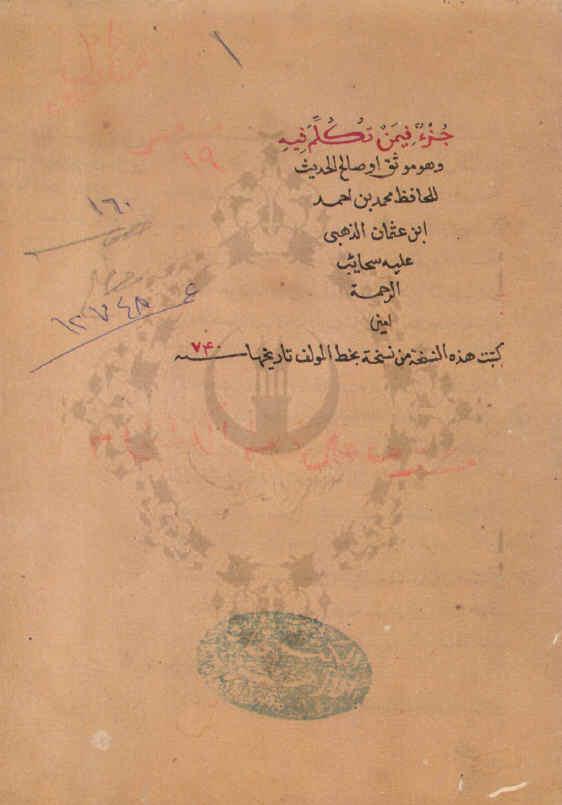 جُزْءٌ فِيمَنْ تُكُلِّمَ فِيهِ
وهو موثق او صالح الحديث
للحافظ محمد بن احمد
ابن عثمان الذهبى
عليه سحايب
الرحمة
امين
كتبت هذه النسخة من نسخة بخط المولف تاريخها سنـ ٧٤٠ـة
١٦٠
١٢٧٤٨